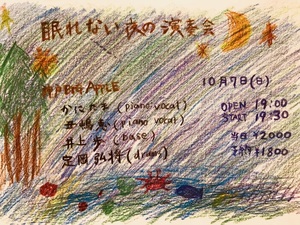 眠れない夜の演奏会
神戸BIG APPLE
10月7日(日)
かにたま (piano vocal)
西嶋 (piano vocal)
井上歩 (base)
定岡弘将 (drum)
OPEN 19:00
START 19:30
当日 ¥2000
予約 ¥1800